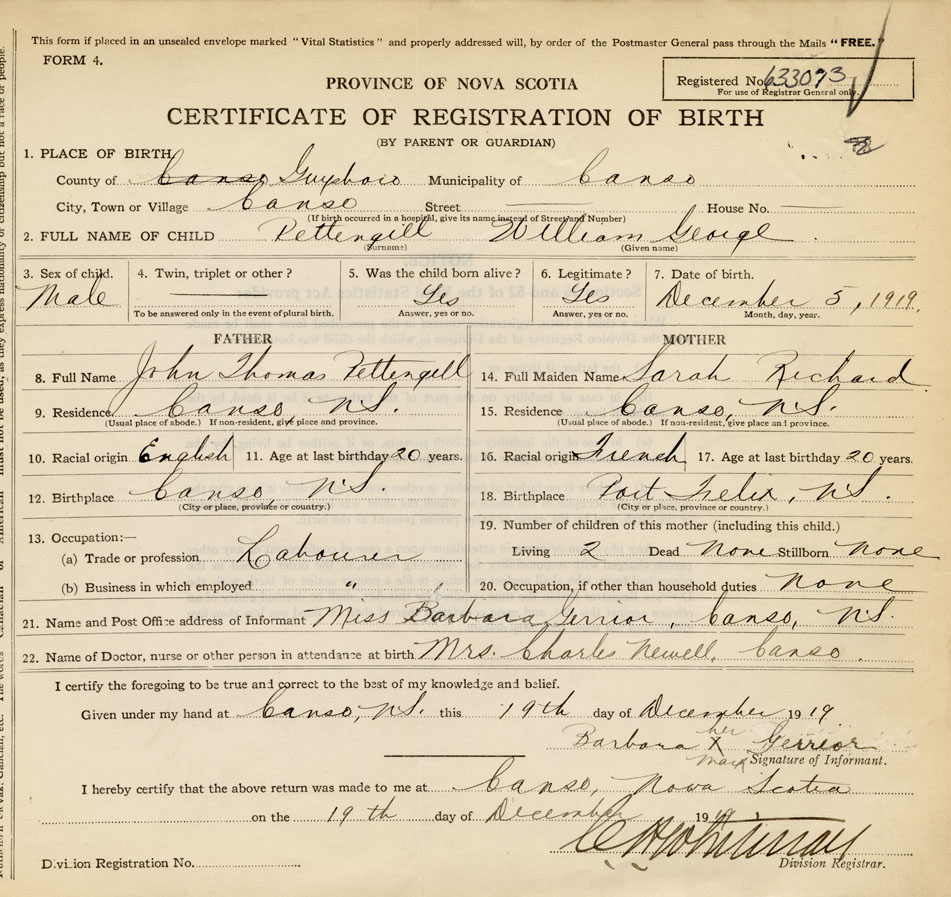 This form if placed in an unsealed envelope marked "Vital Statistics" and properly addressed will, by order of the Postmaster General pass through the Mails "FREE."
FORM 4.
Registered No. 633093
For use of Registrar General only.
PROVINCE OF NOVA SCOTIA
CERTIFICATE OF REGISTRATION OF BIRTH
(BY PARENT OR GUARDIAN)
1. PLACE OF BIRTH
County of Canso Guysboro Municipality of Canso
City, Town or Village Canso Street House No.
(If birth occurred in a hospital, give its name instead of Street and Number)
2. FULL NAME OF CHILD Pettengill William George
(Surname) (Given name)
3. Sex of child. 4. Twin, triplet or other? 5. Was the child born alive? 6. Legitimate? 7. Date of birth.
Male Yes Yes December 5, 1919.
To be answered only in the event of plural birth. Answer, yes or no. Answer, yes or no. Month, day, year.
FATHER
8. Full Name John Thomas Pettengill
9. Residence Canso, N.S.
(Usual place of abode.) If non-resident, give place and province.
10. Racial origin English 11. Age at last birthday 20 years.
12. Birthplace Canso, N.S.
(City or place, province or country.)
13. Occupation:—
(a) Trade or profession Labourer
(b) Business in which employed "
MOTHER
14. Full Maiden Name Sarah Richard
15. Residence Canso, N.S.
(Usual place of abode.) If non-resident, give place and province.
16. Racial origin French 17. Age at last birthday 20 years.
18. Birthplace Port Felix, N.S.
(City or place, province or country.)
19. Number of children of this mother (including this child.)
Living 2 Dead None Stillborn None
20. Occupation, if other than household duties None
21. Name and Post Office address of Informant Miss Barbara Gerrior, Canso, N.S.
22. Name of Doctor, nurse or other person in attendance at birth Mrs. Charles Newell, Canso.
I certify the foregoing to be true and correct to the best of my knowledge and belief.
Given under my hand at Canso, N.S. this 19th day of December 1919
Barbara her X Gerrior
mark Signature of Informant.
I hereby certify that the above return was made to me at Canso, Nova Scotia
on the 19th day of December 19
Division Registration No. Division Registrar.